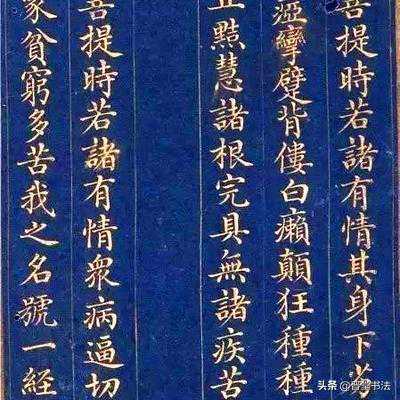 菩提時若諸有情其身下劣
瘂攣躄背僂白癩顛狂種種
正黠慧諸根完具無諸疾苦
菩提時若諸有情衆病逼切
家貧窮多苦我之名號一経
头条 书法